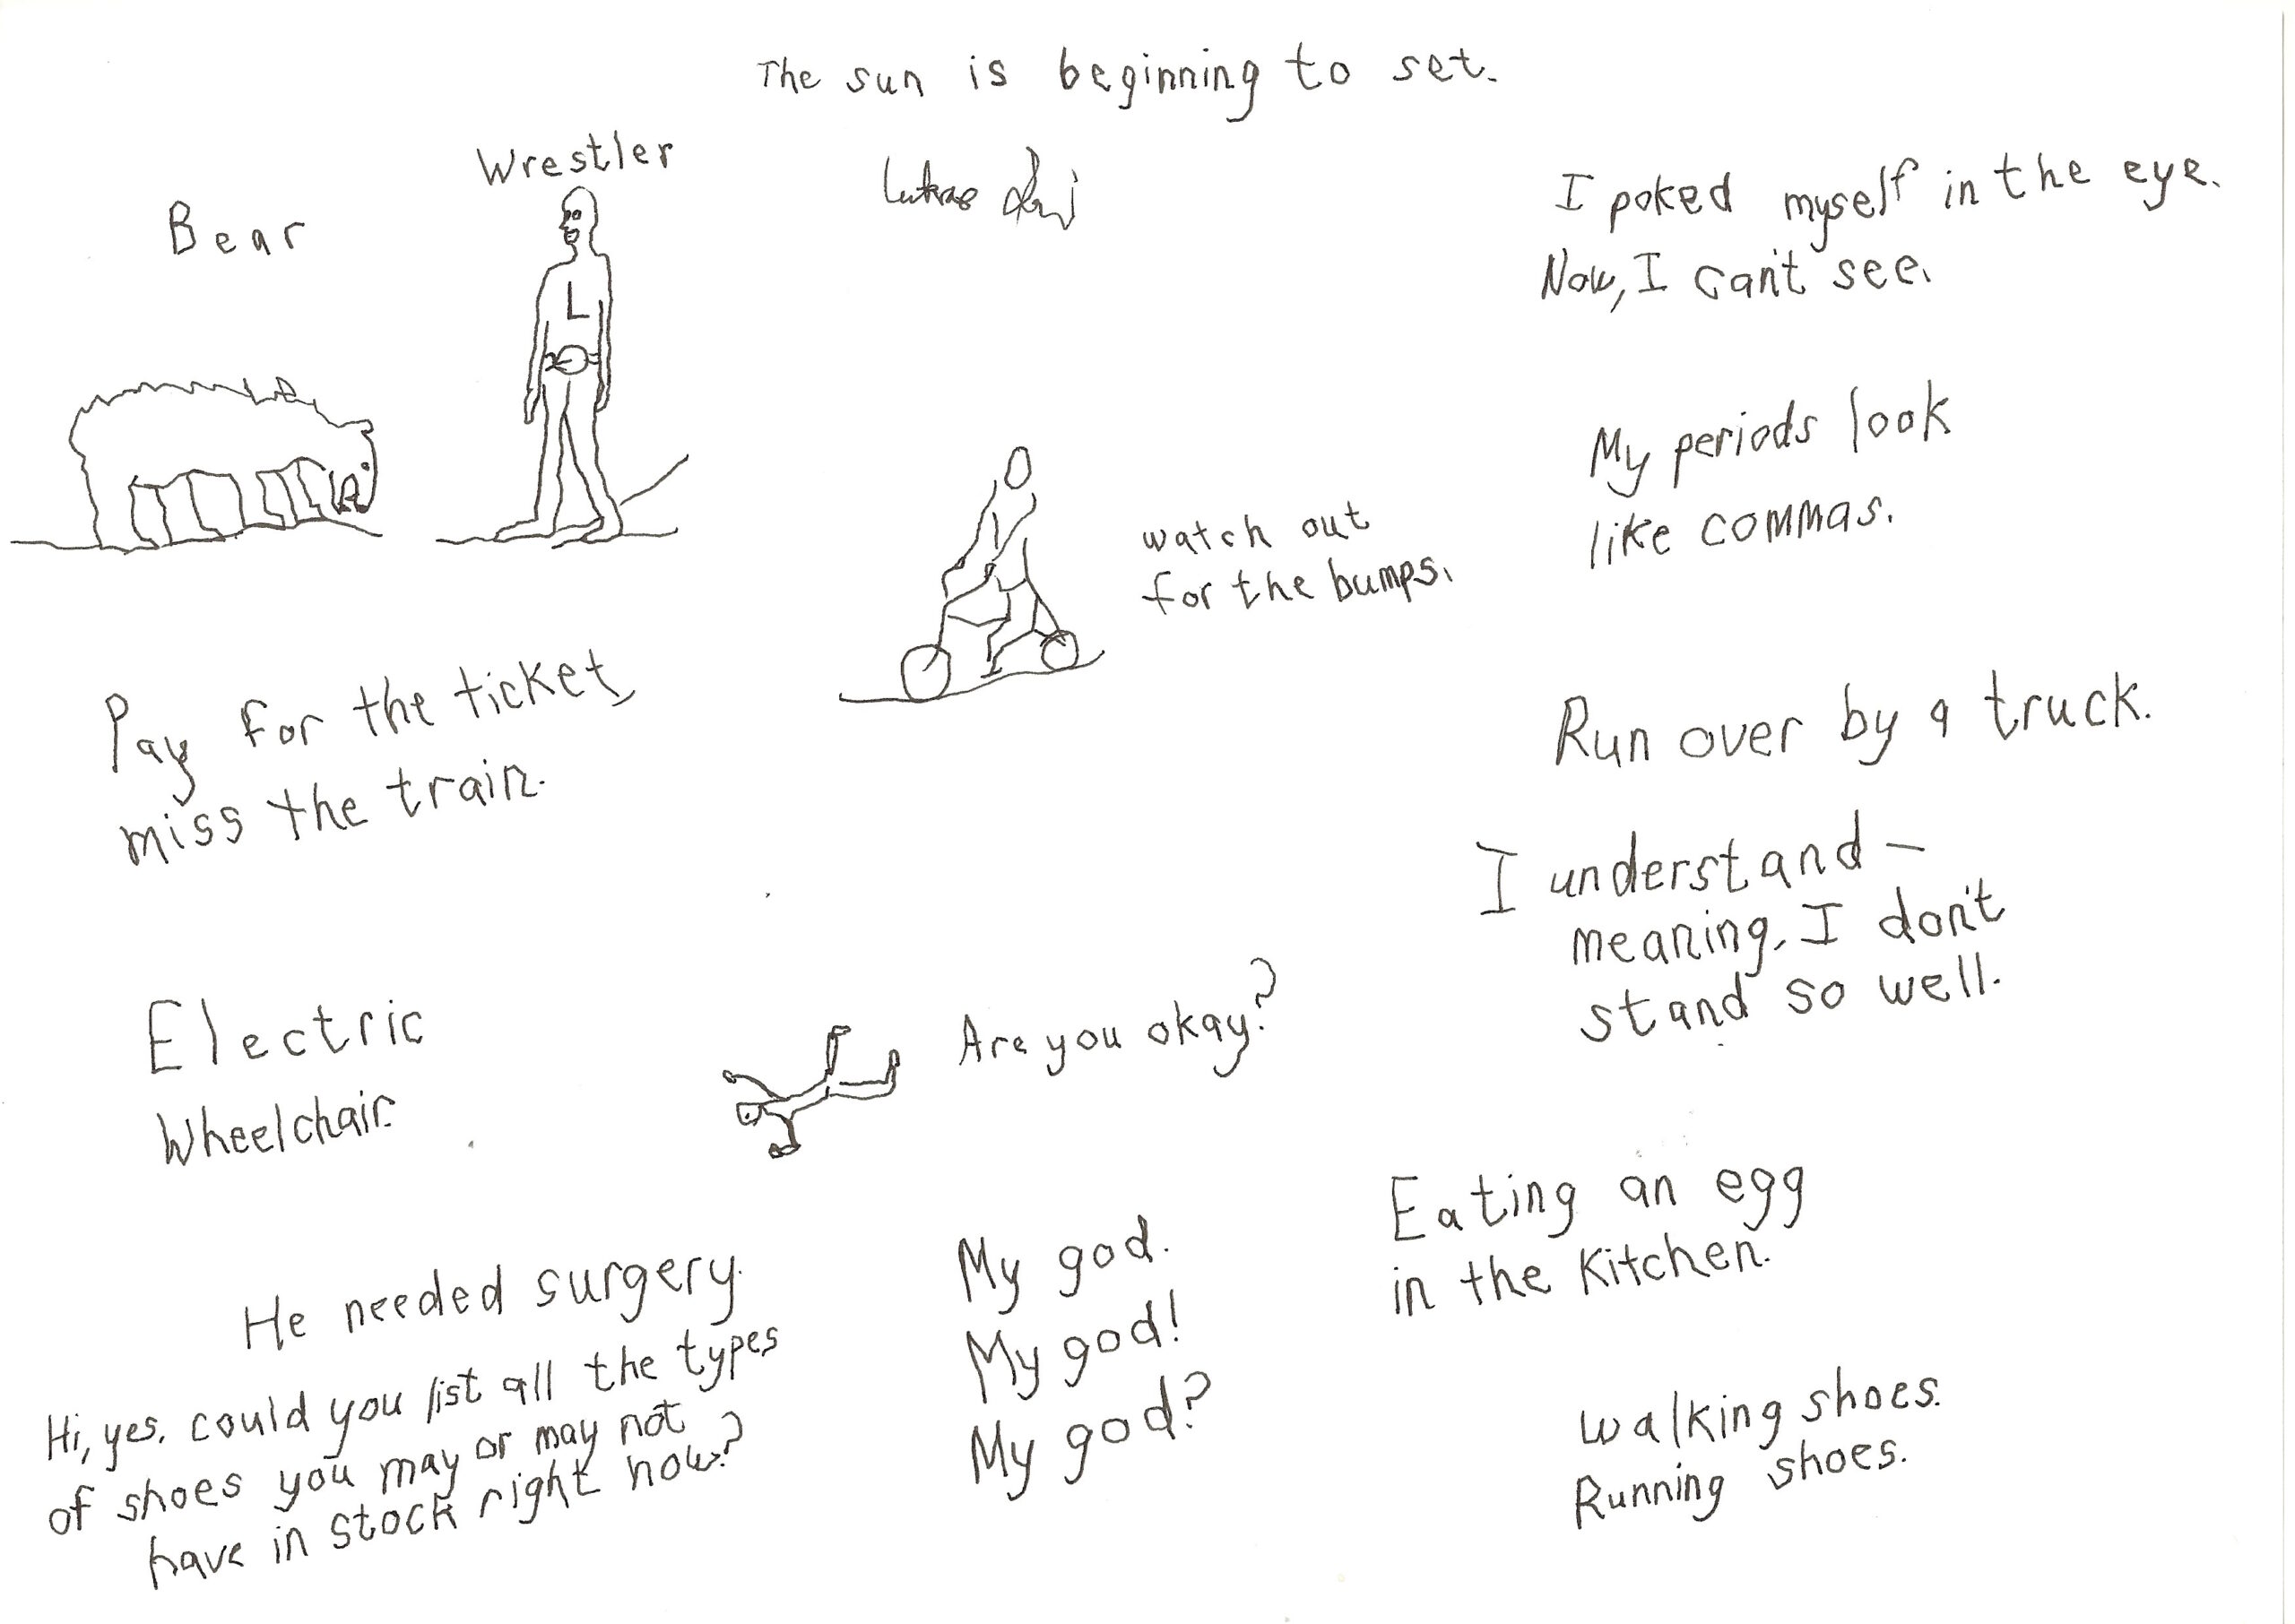 The sun is beginning to set.
Wrestler
Bear
Lukas
L
I poked myself in the eye.
Now, I can't see.
My periods look
like commas.
watch out
for the bumps.
Pay for the ticket,
miss the train.
Run over by a truck.
I understand —
meaning, I don't
stand so well.
Electric
Wheelchair.
Are you okay?
Eating an egg
in the kitchen.
He needed surgery.
My god.
My god!
My god?
Hi, yes, could you list all the types
of shoes you may or may not
have in stock right now?
Walking shoes.
Running shoes.